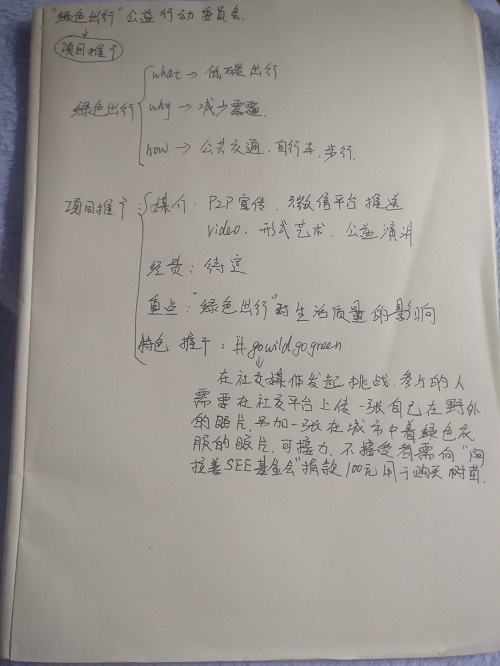 "绿色出行"公益行动委员会.
项目推广
绿色出行
what → 低碳出行
why → 减少雾霾
how → 公共交通、自行车、步行.
项目推广:
媒介: P2P宣传、微信平台推送
video、形式艺术、公益演讲
经费: 待定
重点: "绿色出行"对生活质量的影响
特色推广: #gowildgogreen
在社交媒体发起挑战,参与的人
需要在社交平台上传一张自己在野外
的照片,另加一张在城市中着绿色衣
服的照片,可接力,不接受者需向"阿
拉善SEE基金会"捐款100元用于购买树苗.